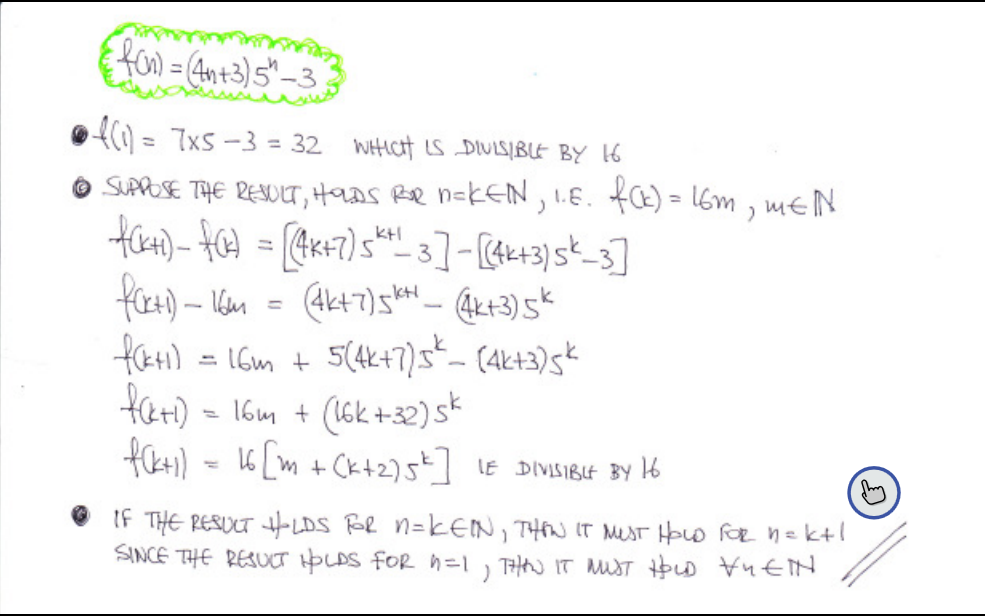 f(n) = (4n+3)5ⁿ - 3
• f(1) = 7×5 - 3 = 32 WHICH IS DIVISIBLE BY 16
• SUPPOSE THE RESULT, HOLDS FOR n=k∈ℕ, I.E. f(k) = 16m, m∈ℕ
f(k+1) - f(k) = [(4k+7)5ᵏ⁺¹ - 3] - [(4k+3)5ᵏ - 3]
f(k+1) - 16m = (4k+7)5ᵏ⁺¹ - (4k+3)5ᵏ
f(k+1) = 16m + 5(4k+7)5ᵏ - (4k+3)5ᵏ
f(k+1) = 16m + (16k+32)5ᵏ
f(k+1) = 16[m + (k+2)5ᵏ] IE DIVISIBLE BY 16
• IF THE RESULT HOLDS FOR n=k∈ℕ, THEN IT MUST HOLD FOR n=k+1
SINCE THE RESULT HOLDS FOR n=1, THEN IT MUST HOLD ∀n∈ℕ